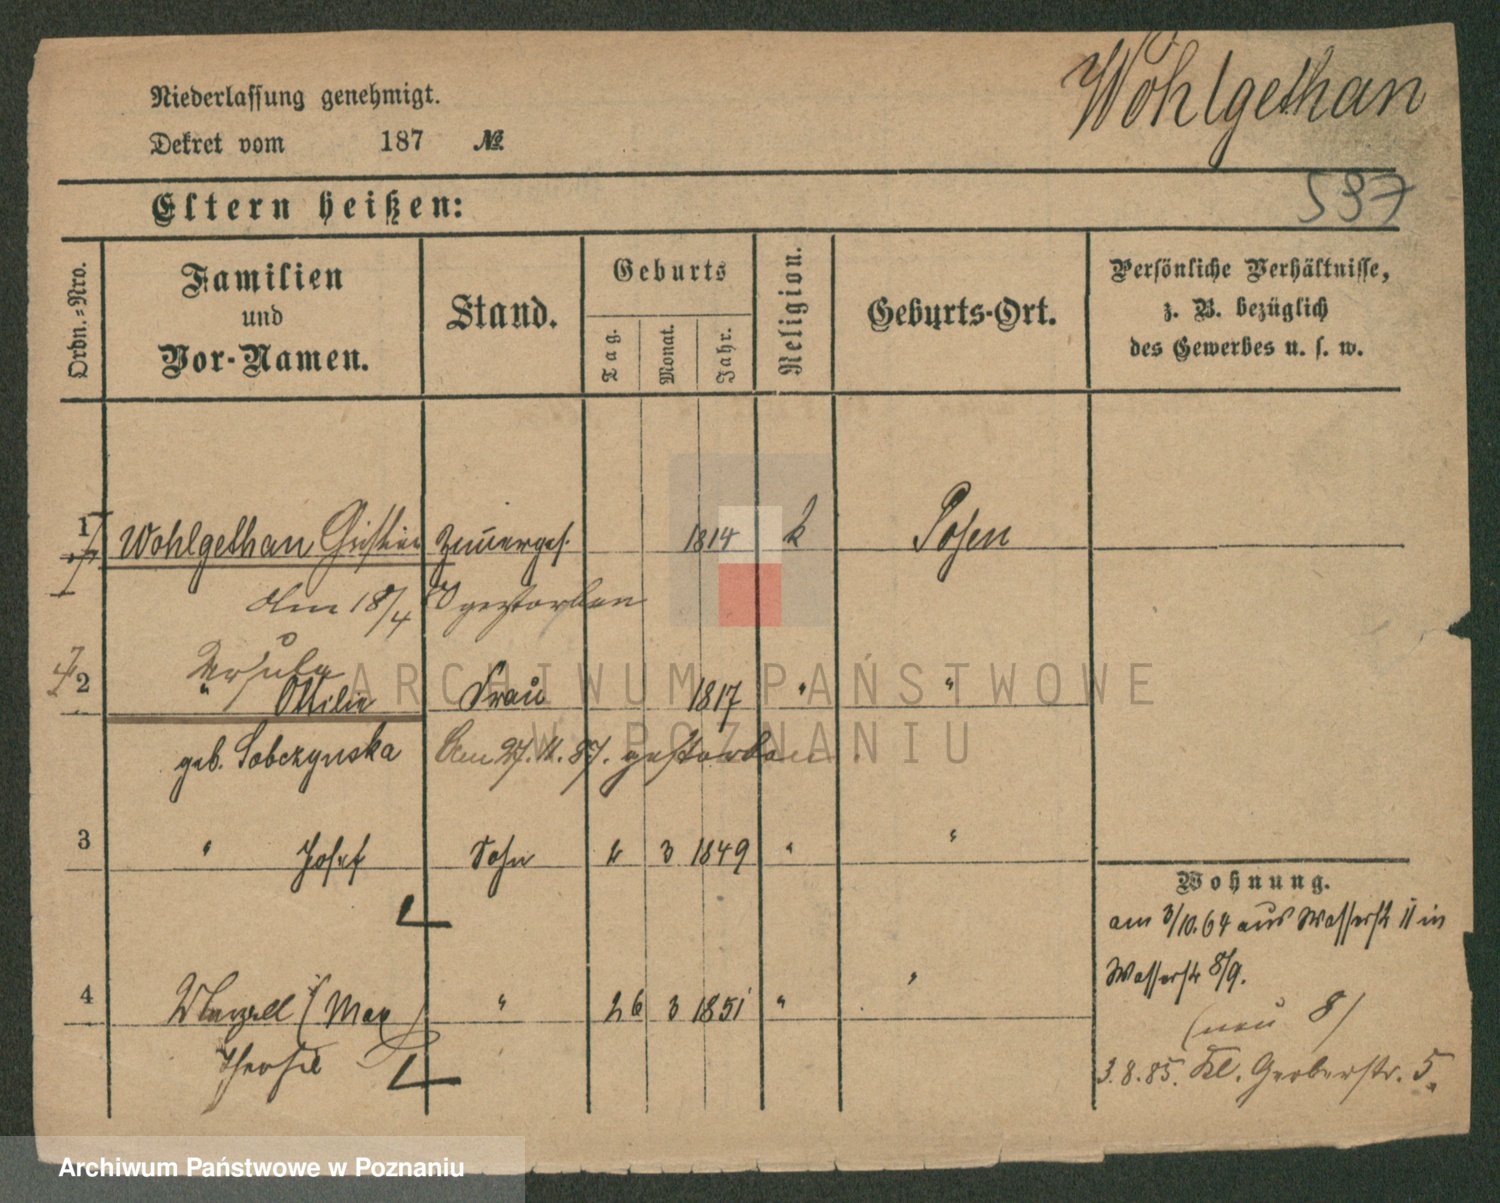 Wohlgethan
Niederlassung genehmigt.
Dekret vom 187 №
537
Eltern heißen:
Ordn.-Nro.
Familien
und
Vor-Namen.
Stand.
Geburts
Tag.
Monat.
Jahr.
Religion.
Geburts-Ort.
Persönliche Verhältnisse,
z. B. bezüglich
des Gewerbes u. s. w.
1 Wohlgethan 1814 k Posen
Am 18/4 gestorben
Ursula
2 " Ottilie Frau 1817 " "
geb. Sobczynska Am 27.11.87. gestorben
3 " Josef Sohn 3 1849 " "
Wohnung.
am 3/10.64 aus Wasserstr 11 in
Wasserstr 8/9.
4 (Max) " 26 3 1851 " "
(neu 8)
3.8.85. Kl. Gerberstr. 5.
ARCHIWUM PAŃSTWOWE
W POZNANIU
Archiwum Państwowe w Poznaniu